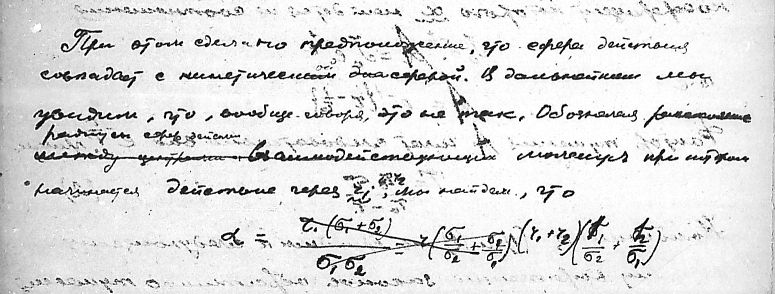 При этом сделано предположение, что сфера действия
совпадает с кинетической диасферой. В дальнейшем мы
увидим, что, вообще говоря, это не так. Обозначая расстояние
радиусы сфер действия
между центрами взаимодействующих молекул при котором
начинается действие через r₁, r₂ мы найдем, что
α = r₁(σ₁+σ₂) / σ₁σ₂ = r(σ₁/σ₂ + σ₂/σ₁) (r₁+r₂)(σ₁/σ₂ + σ₂/σ₁)